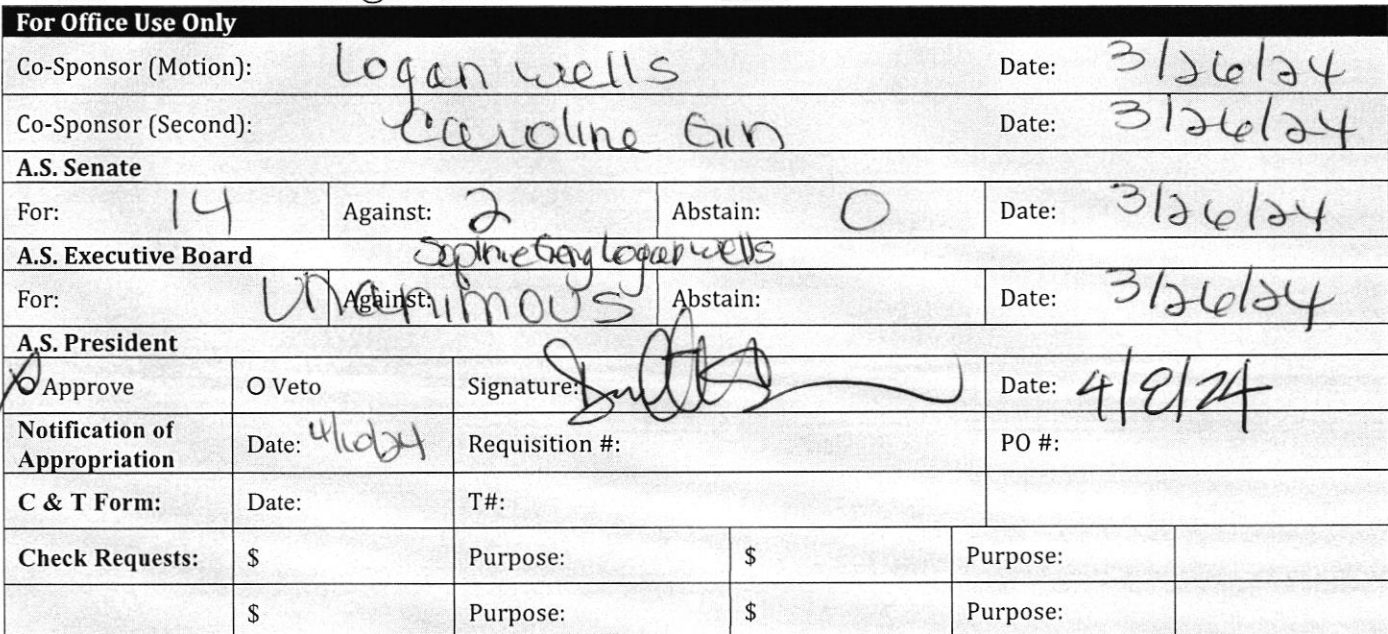 For Office Use Only
Co-Sponsor (Motion): Logan wells Date: 3/26/24
Co-Sponsor (Second): Caroline Date: 3/26/24
A.S. Senate
For: 14 Against: 2 Abstain: 0 Date: 3/26/24
A.S. Executive Board Logan wells
For: Unanimous Against: Abstain: Date: 3/26/24
A.S. President
O Approve O Veto Signature: Date: 4/8/24
Notification of Appropriation Date: 4/10/24 Requisition #: PO #:
C & T Form: Date: T#:
Check Requests: $ Purpose: $ Purpose:
$ Purpose: $ Purpose: